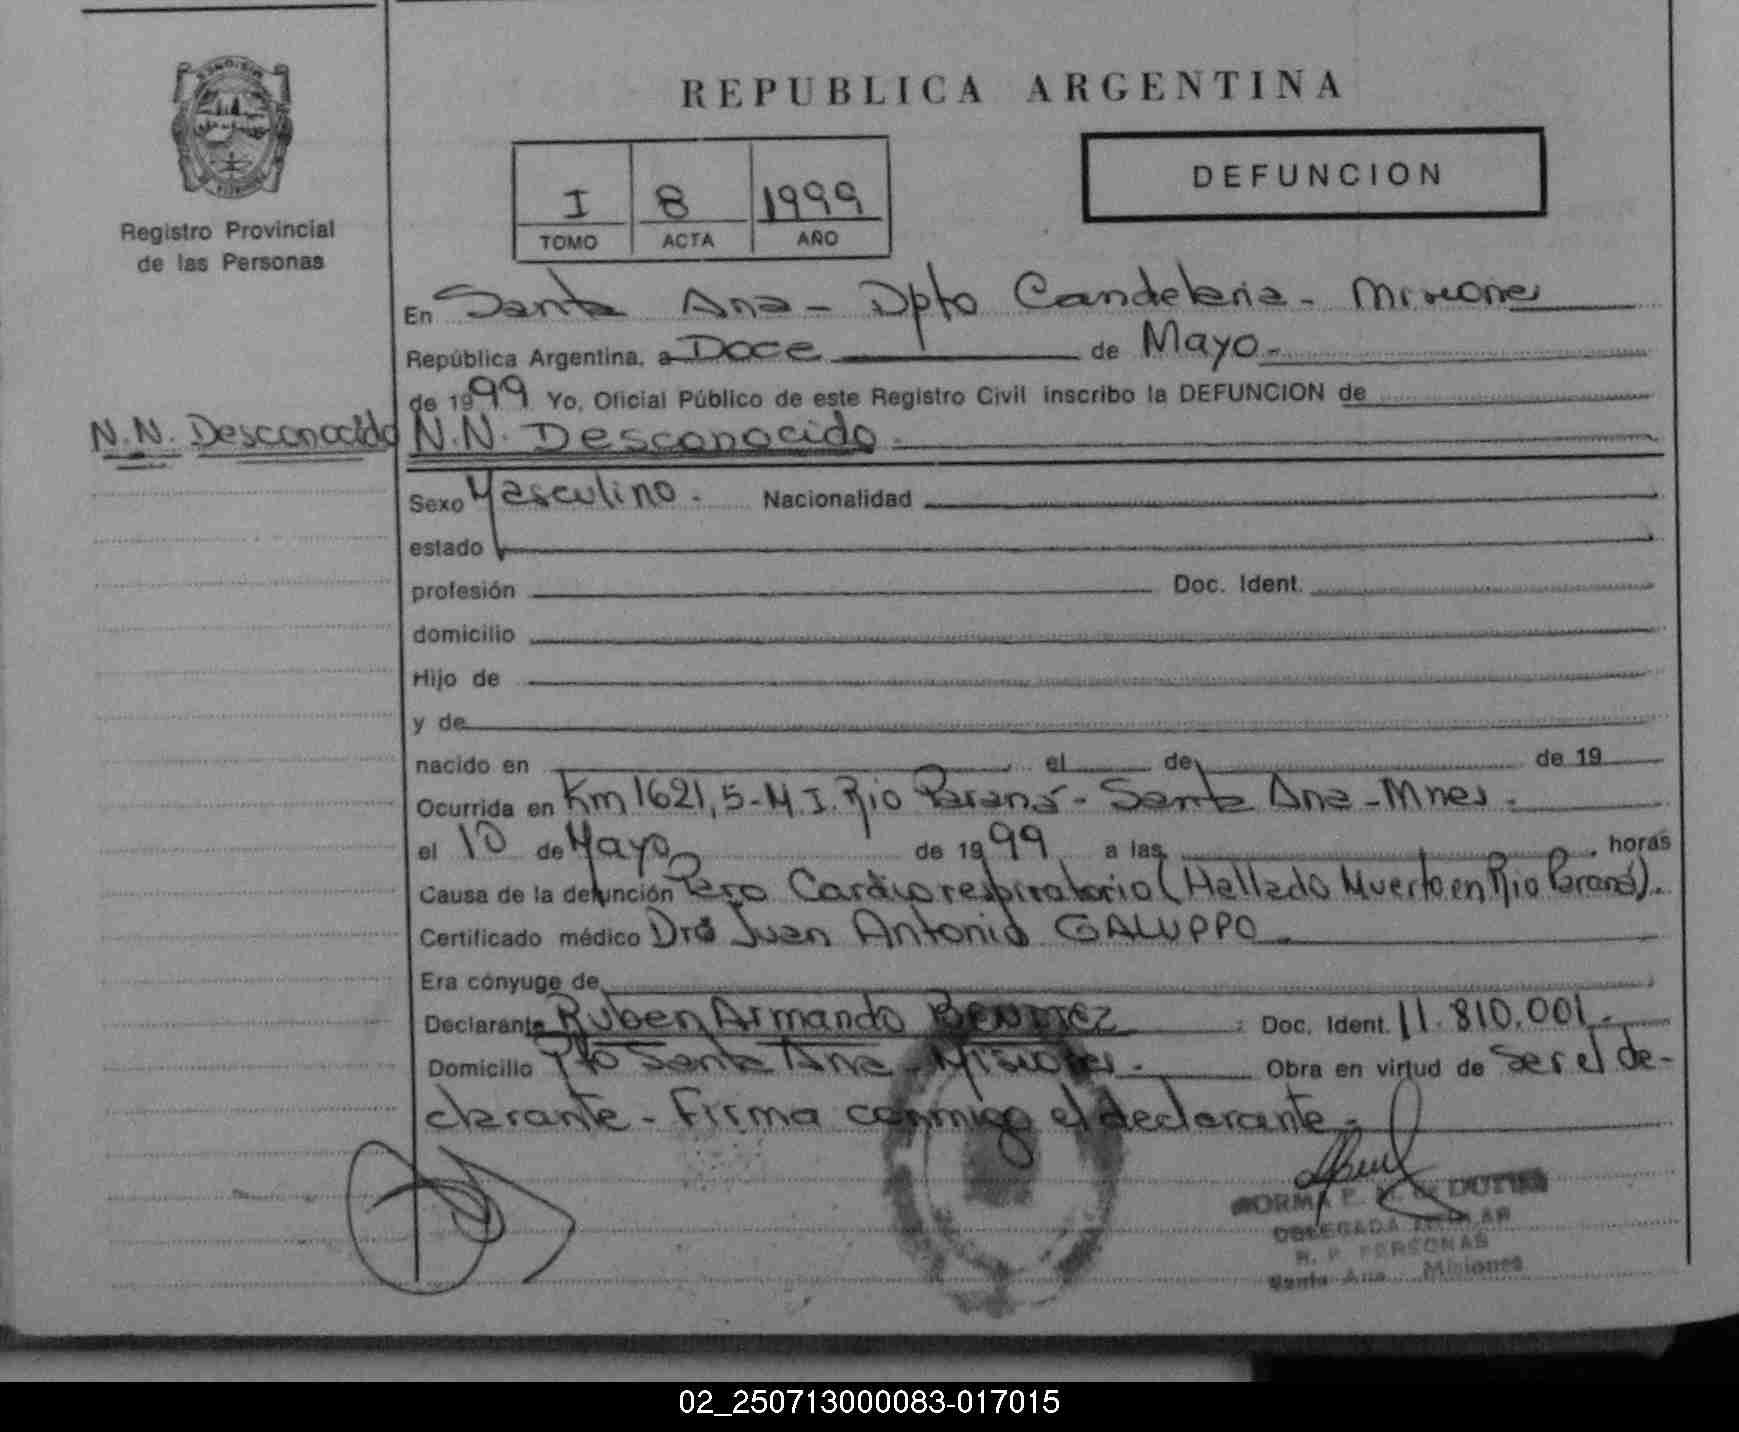 REPUBLICA ARGENTINA
DEFUNCION
I 8 1999
TOMO ACTA AÑO
Registro Provincial
de las Personas
En Santa Ana - Dpto Candelaria - Misiones
República Argentina, a Doce de Mayo.-
de 1999 Yo, Oficial Público de este Registro Civil inscribo la DEFUNCION de
N.N. Desconocido
N.N. Desconocido.
Sexo Masculino. Nacionalidad
estado
profesión Doc. Ident.
domicilio
Hijo de
y de
nacido en el de de 19
Ocurrida en Km 1621,5 - M.I. Rio Paraná - Santa Ana - Mnes.
el 10 de Mayo de 1999 a las horas
Causa de la defunción Paro Cardiorespiratorio (Hallado Muerto en Rio Paraná).
Certificado médico Dr. Juan Antonio GALUPPO.
Era cónyuge de
Declarante Ruben Armando Benitez Doc. Ident. 11.810.001.
Domicilio Pto Santa Ana - Misiones. Obra en virtud de ser el de-
clarante - Firma conmigo el declarante.
NORMA
DELEGADA TITULAR
R. P. PERSONAS
Santa Ana Misiones
02_250713000083-017015